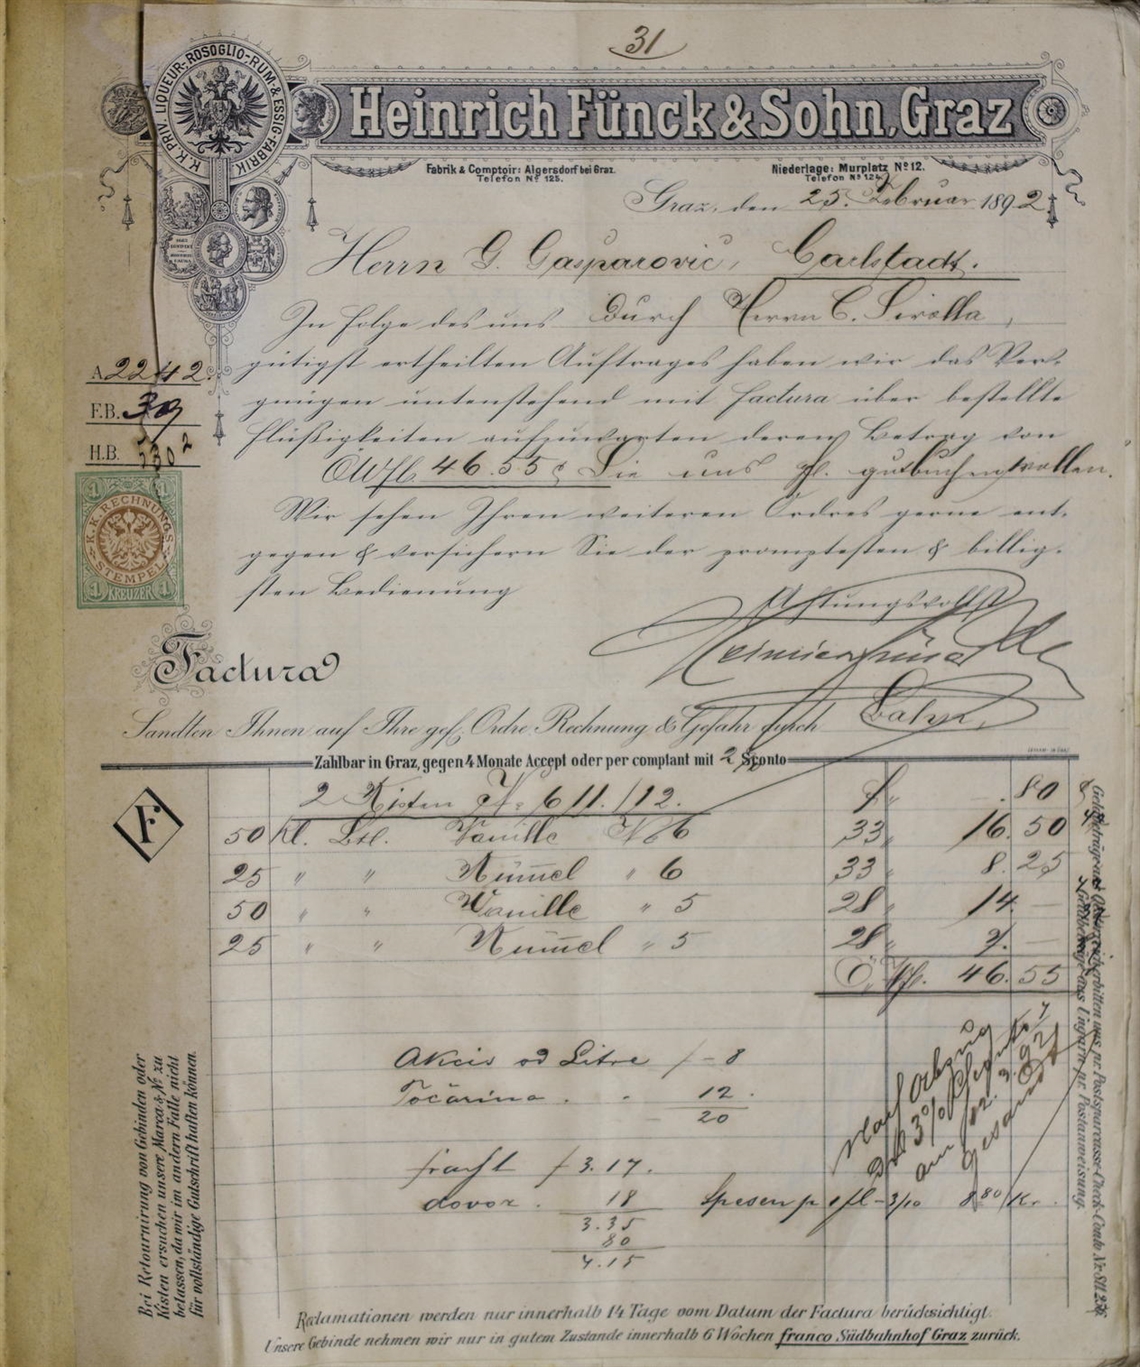 31
K. K. PRIV. LIQUEUR-, ROSOGLIO-, RUM- & ESSIG-FABRIK
Heinrich Fünck & Sohn, Graz
Fabrik & Comptoir: Algersdorf bei Graz.
Telefon Nº 125.
Niederlage: Murplatz Nº 12.
Telefon Nº 124
Graz, den 25. Februar 1892.
Herrn G. Gasparović, Carlstadt.
In Folge des uns durch Herrn C.
gütigst ertheilten Auftrages haben wir das Ver-
gnügen untenstehend mit Factura über bestellte
Flüßigkeiten aufzuwarten deren Betrag von
ÖWfl. 46.55 Sie uns gutbuchen wollen.
Wir sehen Ihren weiteren Ordres gerne ent-
gegen & versichern Sie der promptesten & billig-
sten Bedienung
Achtungsvollst
A 2242.
F.B.
H.B.
1 1
K. K. RECHNUNGS STEMPEL
1 KREUZER 1
Factura
Sandten Ihnen auf Ihre gef. Ordre Rechnung & Gefahr durch
Zahlbar in Graz, gegen 4 Monate Accept oder per comptant mit 2% Sconto
F
2 Kisten Nº 611./12. . 80
50 kl. Btl. Vanille Nº 6 33 16. 50
25 " " Kümmel " 6 33 8. 25
50 " " Vanille " 5 28 14. —
25 " " Kümmel " 5 28 7. —
Ö.Wfl. 46. 55
Akcis od Litre f - 8
Točarina . . 12.
20
fracht f 3.17.
dovoz . 18
3.35
80
4.15
Spesen p 1 fl - 3/10 8.80/Kr.
3%
am 12. 3. 92
Bei Retournirung von Gebinden oder
Kisten ersuchen unsere Marca & Nº zu
belassen, da wir im andern Falle nicht
für vollständige Gutschrift haften können.
Geldbeträge aus Österreich erbitten uns pr. Postsparcasse-Check-Conto Nr.
Geldbeträge aus Ungarn pr. Postanweisung.
Reclamationen werden nur innerhalb 14 Tage vom Datum der Factura berücksichtigt.
Unsere Gebinde nehmen wir nur in gutem Zustande innerhalb 6 Wochen franco Südbahnhof Graz zurück.